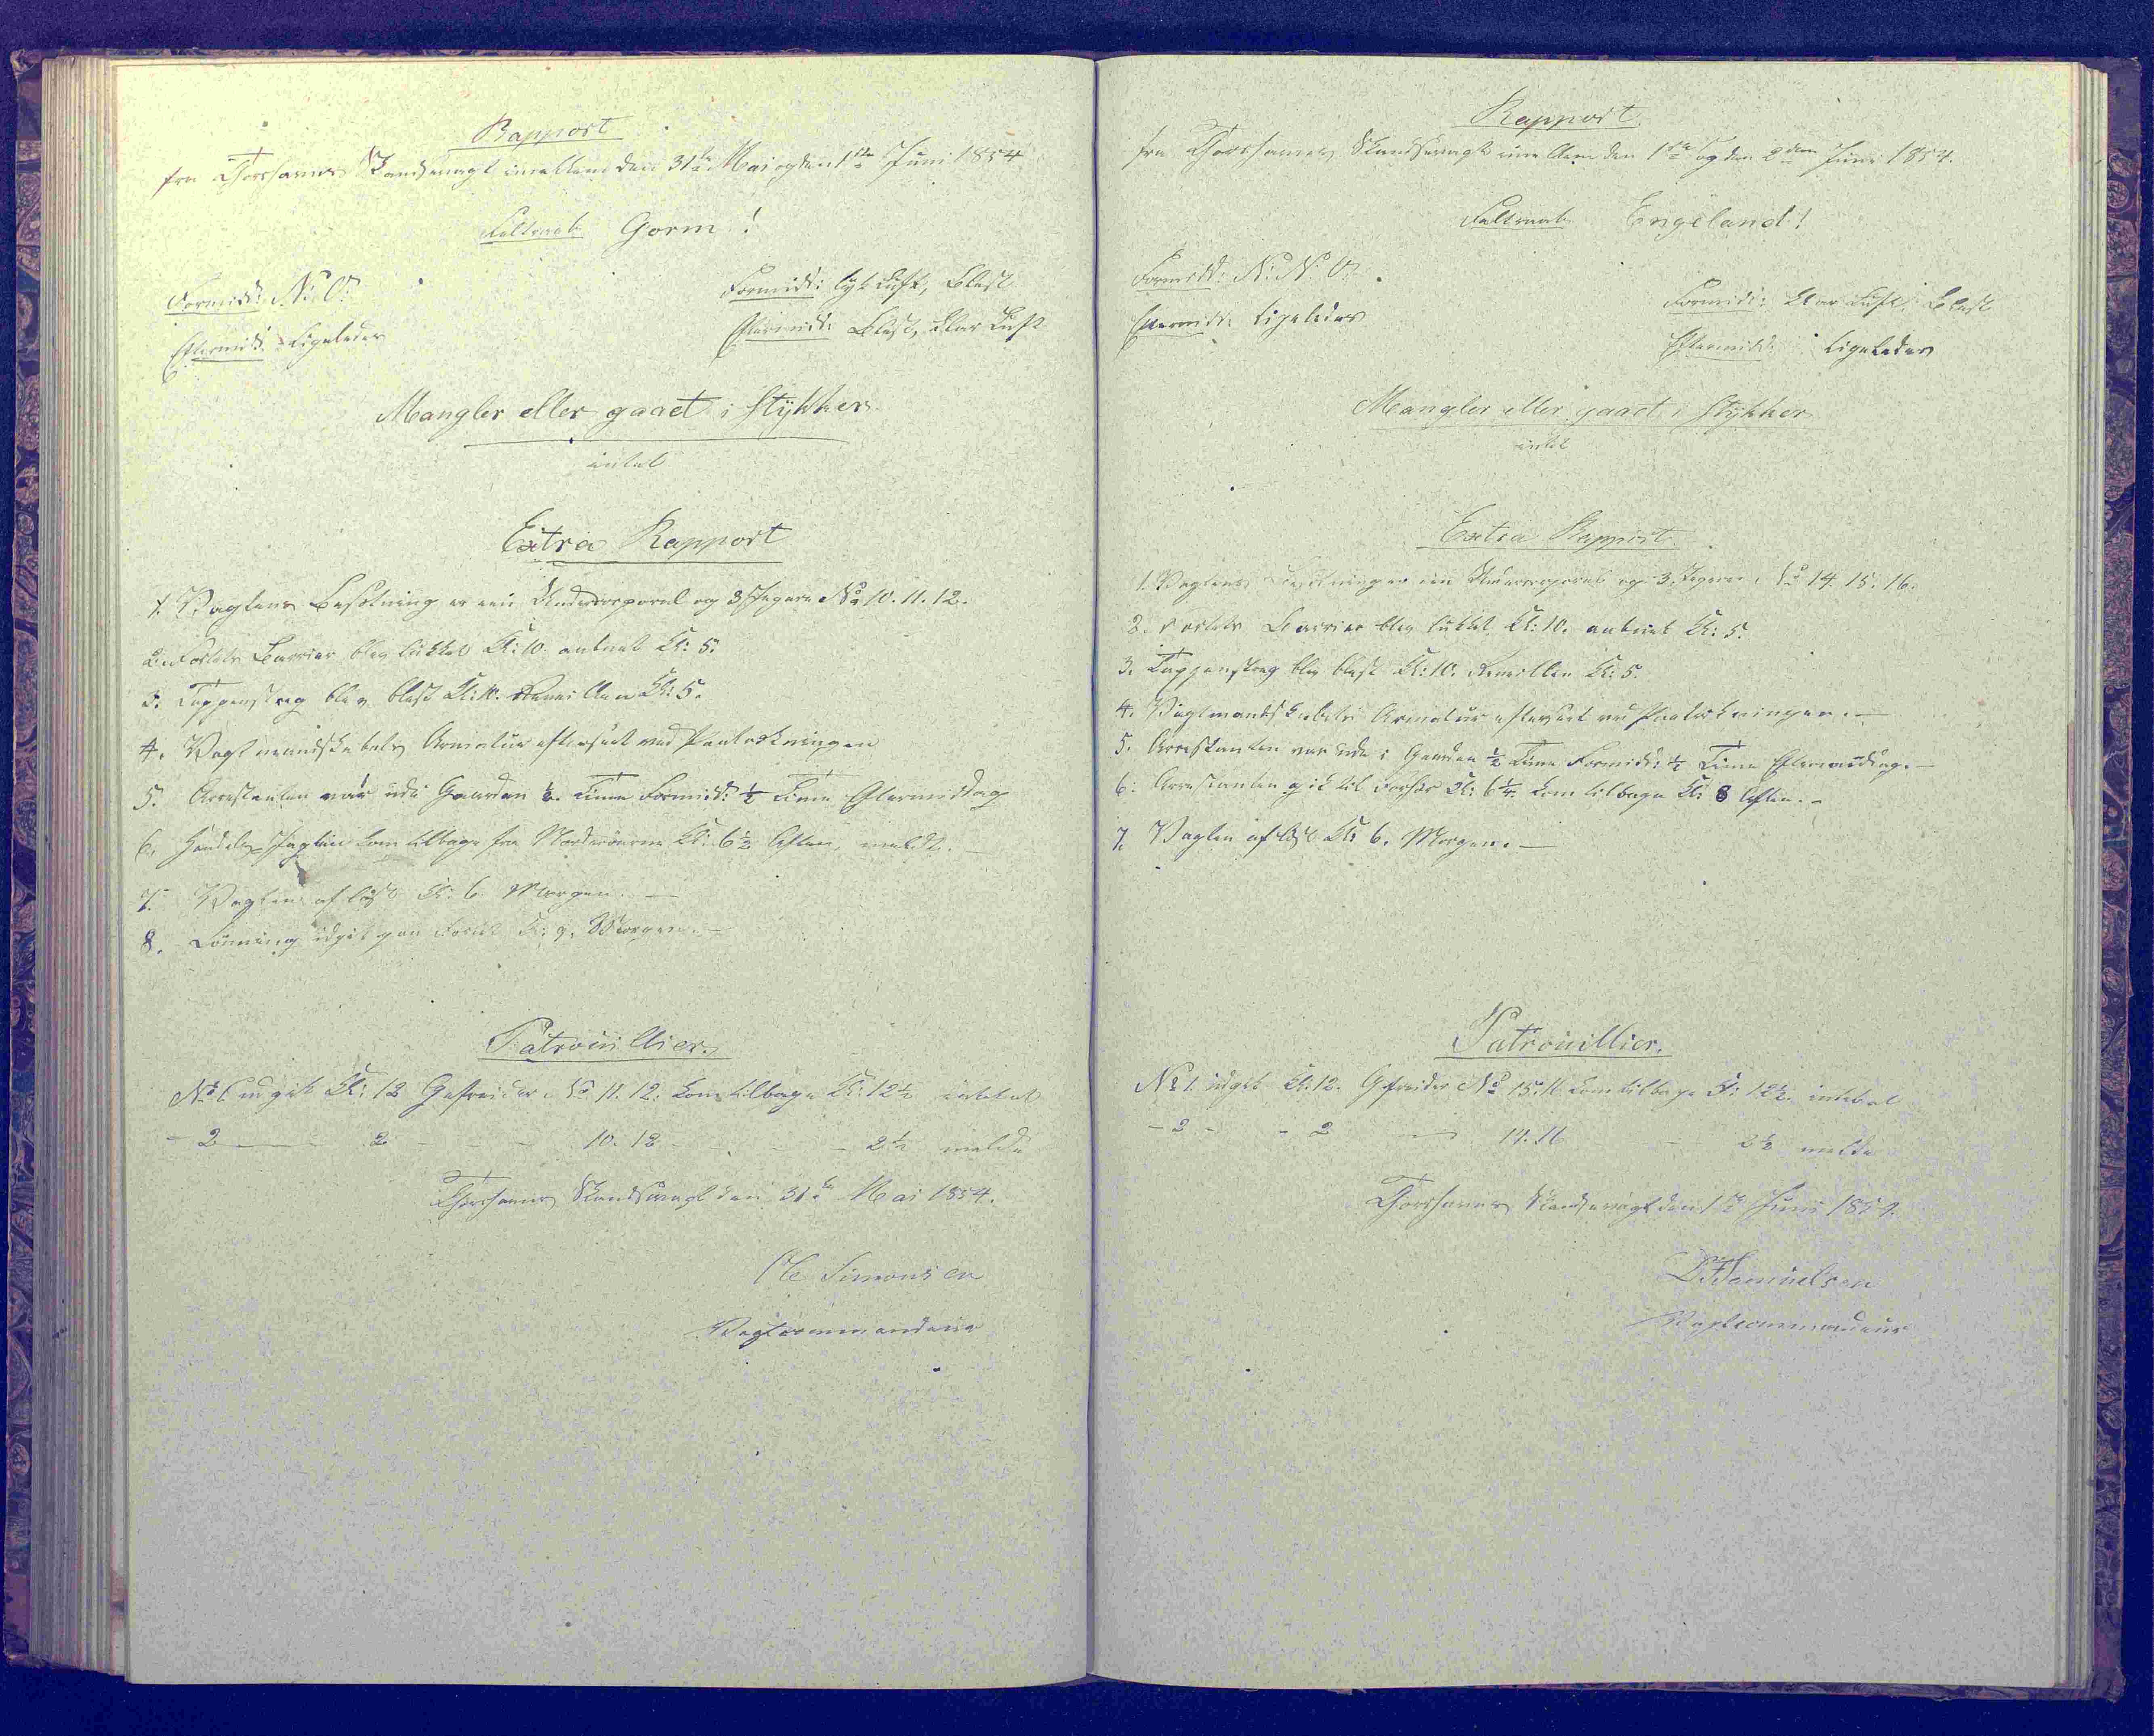 Rapport
fra Thorshavns Skandsevagt imellem den 31te Mai og den 1ste Juni 1854
Feltraab Gorm!
Formidd: N:O:
Eftermidd: Ligeledes
Formidd: tyk Luft, Blæst
Eftermidd: Blæst, klar Luft
Mangler eller gaaet i Stykker
intet
Extra Rapport
1. Vagtens Besætning er een Undercorporal og 3 Jægere No 10. 11. 12.
2. Fortets Barrier blev lukket Kl: 10. aabnet Kl: 5.
3. Tappenstreg blev blæst Kl: 10. Reveillen Kl: 5.
4. Vagtmandskabets Armatur efterseet ved Paatrækningen
5. Arrestanten var ude i Gaarden ½ Time Formidd: ½ Time Eftermiddag
6. Handels Jagten kom tilbage fra Norderöerne Kl: 6½ Aften, meldt. –
7. Vagten aflöst Kl: 6. Morgen. –
8. Lönning udgik paa Fortet Kl: 9. Morgen. –
Patrouillier.
No 1 udgik Kl: 12 Gefreider No 11. 12. kom tilbage Kl: 12½ intet at
– 2 – – 2 – – 10. 12 – – – 2½ melde
Thorshavns Skandsevagt den 31te Mai 1854.
Ole Simonsen
Vagtcommandeur
Rapport.
fra Thorshavns Skandsevagt imellem den 1ste og den 2den Juni 1854.
Feltraab Engeland!
Formidd: N: N: O:
Eftermidd: Ligeledes
Formidd: klar Luft, Blæst
Eftermidd: Ligeledes
Mangler eller gaaet i Stykker
intet
Extra Rapport.
1. Vagtens Besætning er een Undercorporal og 3 Jægere, No 14. 15. 16.
2. Fortets Barrier blev lukket Kl: 10. aabnet Kl: 5.
3. Tappenstreg blev blæst Kl: 10. Reveillen Kl: 5.
4. Vagtmandskabets Armatur efterseet ved Paatrækningen. –
5. Arrestanten var ude i Gaarden ½ Time Formidd: ½ Time Eftermiddag. –
6. Arrestanten gik til Forhör Kl: 6¼. kom tilbage Kl: 8 Aften. –
7. Vagten aflöst Kl: 6. Morgen. –
Patrouillier.
No 1. udgik Kl: 12. Gefreider No 15. 16 kom tilbage Kl: 12½. intet at
– 2 – – 2 – 14. 16 – 2½ melde
Thorshavns Skandsevagt den 1ste Juni 1854.
Samuelsen
Vagtcommandeur